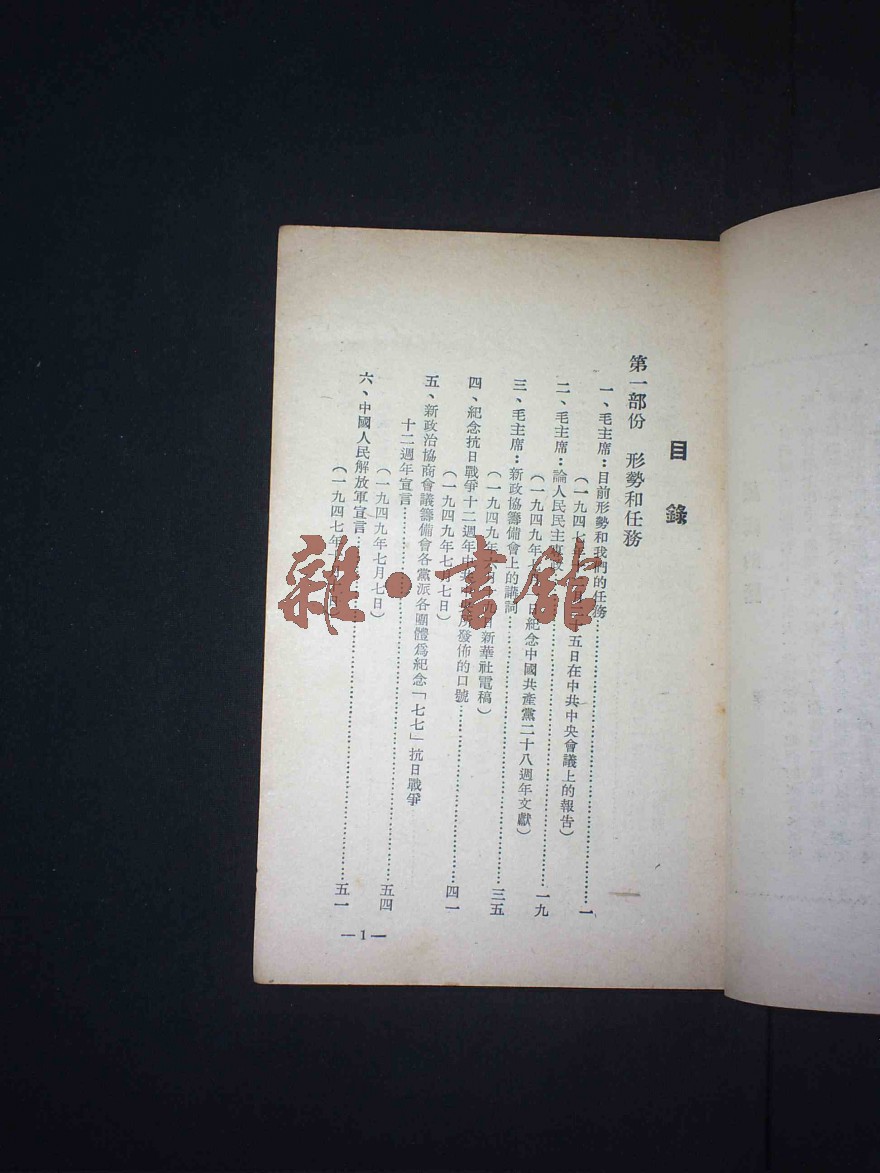 目錄
第一部份 形勢和任務
一、毛主席：目前形勢和我們的任務……一
（一九四七年十二月二十五日在中共中央會議上的報告）
二、毛主席：論人民民主專政……一九
（一九四九年七月一日紀念中國共產黨二十八週年文獻）
三、毛主席：新政協籌備會上的講詞……三五
（一九四九年六月 日新華社電稿）
四、紀念抗日戰爭十二週年中共中央所發佈的口號……四一
（一九四九年七月七日）
五、新政治協商會議籌備會各黨派各團體爲紀念「七七」抗日戰爭
十二週年宣言……五四
（一九四九年七月七日）
六、中國人民解放軍宣言……五一
（一九四七年十月 日）
—1—
雜·書館